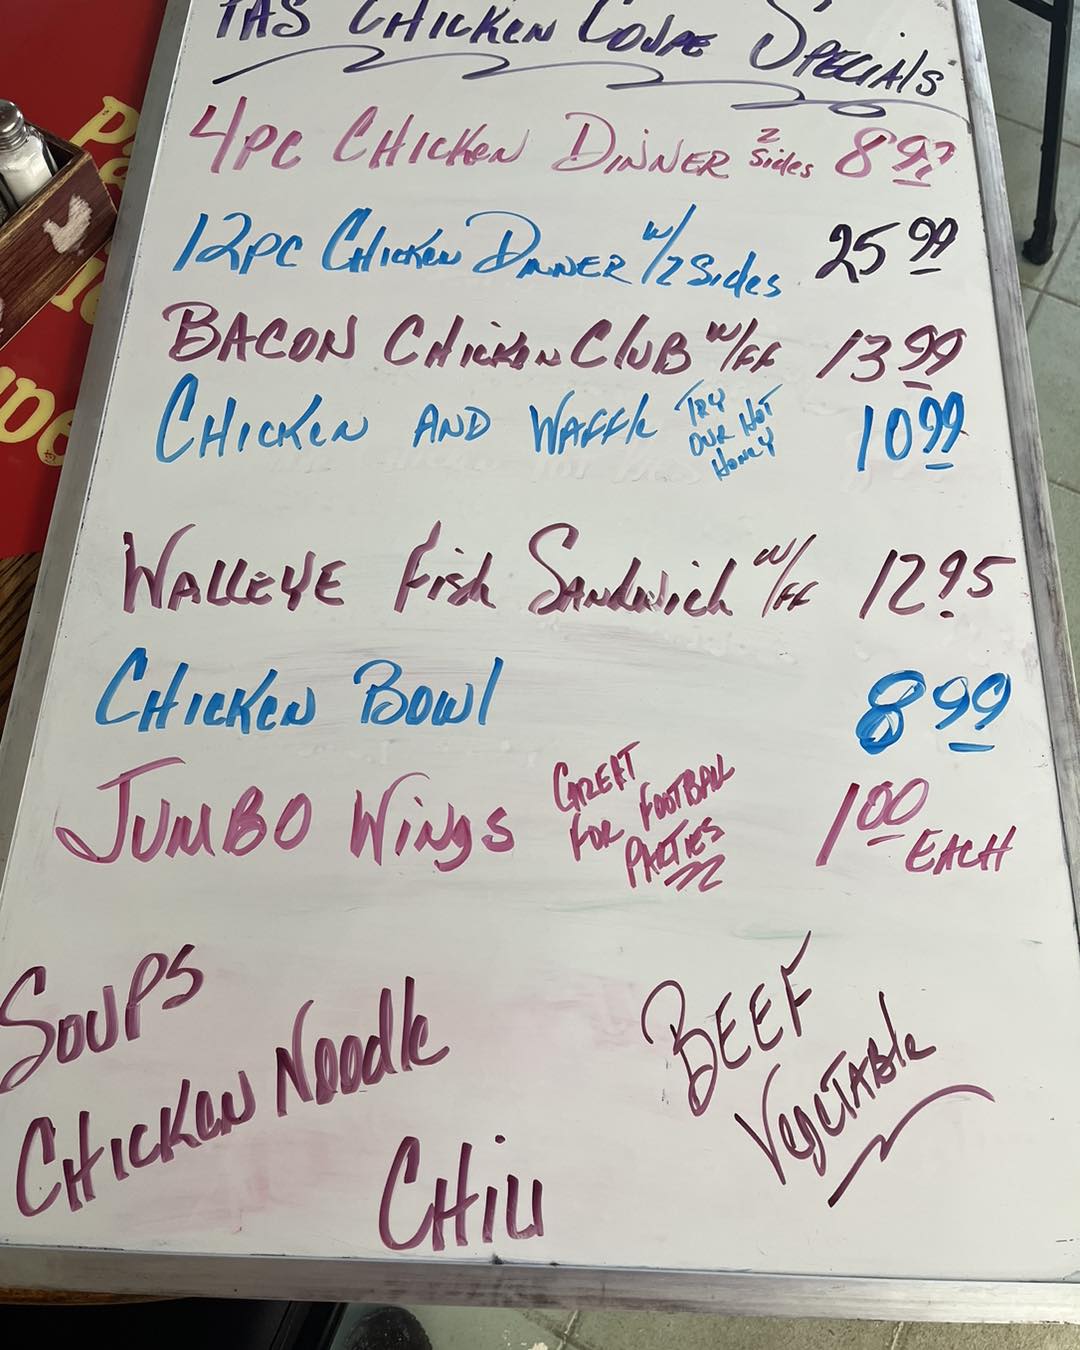 PAS CHICKEN COUPE SPECIALS
4PC CHICKEN DINNER 2 Sides 8.99
12PC CHICKEN DINNER W/2 Sides 25.99
BACON CHICKEN CLUB W/FF 13.99
CHICKEN AND WAFFLE TRY OUR HOT HONEY 10.99
WALLEYE Fish SANDWICH W/FF 12.95
CHICKEN BOWL 8.99
JUMBO WINGS GREAT FOR FOOTBALL PARTIES 1.00 EACH
SOUPS
CHICKEN NOODLE
BEEF VEGETABLE
CHILI